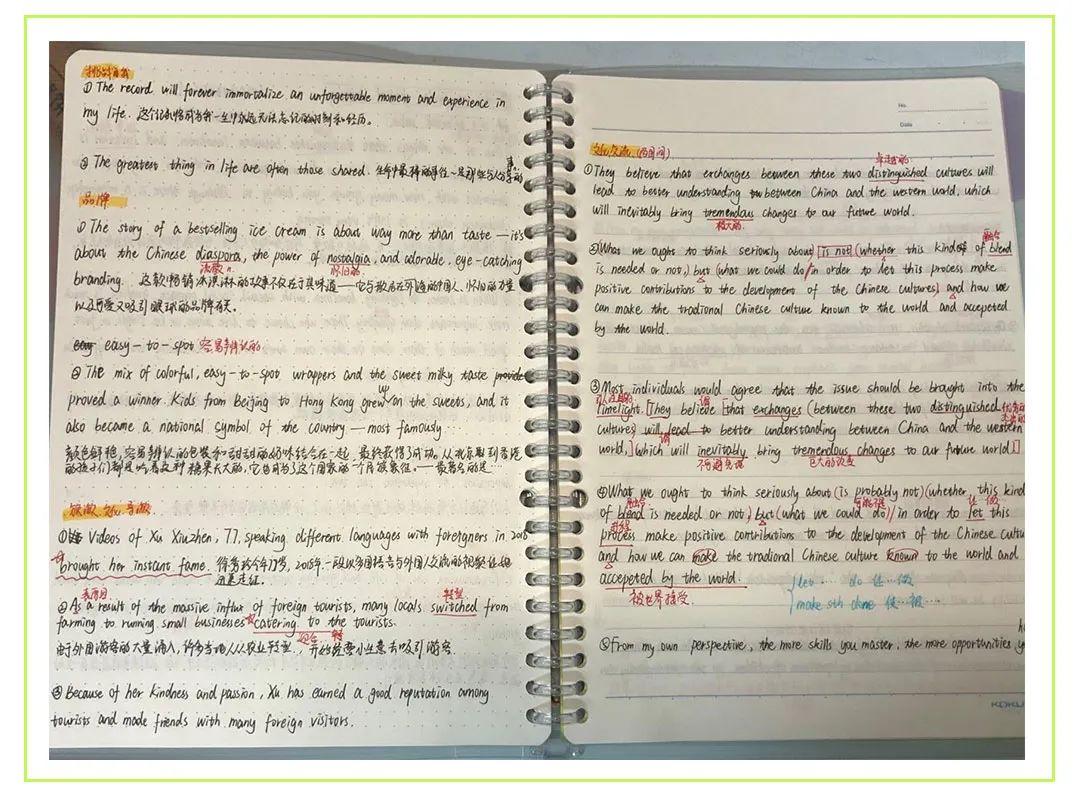 挑战自我
① The record will forever immortalize an unforgettable moment and experience in
my life. 这个纪录将成为我一生中永远无法忘记的时刻和经历。
② The greatest thing in life are often those shared. 生命中最棒的
品牌
① The story of a bestselling ice cream is about way more than taste — it's
about the Chinese diaspora, the power of nostalgia, and adorable, eye-catching
流散 n. 怀旧的
branding. 这款畅销冰淇淋的故事不仅在于其味道——它与散居在外的中国人、怀旧的力量
以及可爱又吸引眼球的品牌有关。
easy-to-spot 容易辨认的
② The mix of colorful, easy-to-spot wrappers and the sweet milky taste
proved a winner. Kids from Beijing to Hong Kong grew on the sweets, and it
also became a national symbol of the country — most famously...
颜色鲜艳,容易辨认的包装和甜甜的奶味结合在一起,最终获得了成功。从北京到香港
的孩子们都是吃着这种糖果长大的,它也成为了这个国家的一个民族象征。——最著名的是...
旅游、文化、导游
① Videos of Xu Xiuzhen, 77, speaking different languages with foreigners in 2015
brought her instant fame. 徐秀珍今年77岁, 2015年,一段以多国语言与外国人交流的视频让她
迅速走红。
表原因 转型
② As a result of the massive influx of foreign tourists, many locals switched from
farming to running small businesses catering to the tourists.
迎合
由于外国游客的大量涌入,许多当地人从农业转型,开始经营小生意去吸引游客
③ Because of her kindness and passion, Xu has earned a good reputation among
tourists and made friends with many foreign visitors.
No.
Date
文化交流 (两国间)
卓越的
① They believe that exchanges between these two distinguished cultures will
lead to better understanding between China and the western world, which
will inevitably bring tremendous changes to our future world.
极大的
融合
② What we ought to think seriously about is not (whether this kind of blend
is needed or not,) but (what we could do / in order to let this process make
positive contributions to the development of the Chinese cultures) and how we
can make the tradional Chinese culture known to the world and accepeted
by the world.
③ Most individuals would agree that the issue should be brought into the
引人注目的 谓
limelight. [They believe [that exchanges (between these two distinguished
cultures) will lead to better understanding between China and the western
world,] [which will inevitably bring tremendous changes to our future world]]
不可避免地 巨大的改变
④ What we ought to think seriously about (is probably not) (whether this kind
融合 可能不是 让 做
of blend is needed or not,) but (what we could do) / in order to let this
进程
process make positive contributions to the development of the Chinese cultu
and how we can make the tradional Chinese culture known to the world and
accepeted by the world.
被世界接受.
let ... do 使...做
make sth done 使...被...
⑤ From my own perspective, the more skills you master, the more opportunities
KOKU